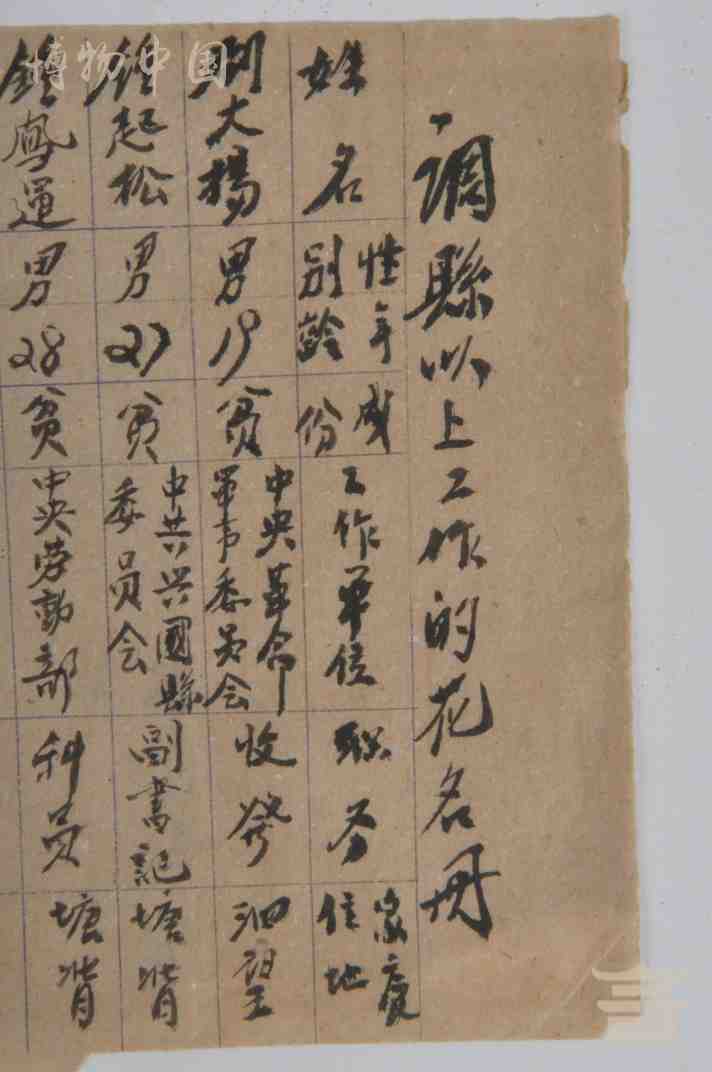 博物中国
調縣以上工作的花名冊
姓名 性别 年齡 成份 工作单位 职务 家庭住地
大揚 男 19 贫 中央革命軍事委员会 收發 泗望
鍾起松 男 27 贫 中共兴國縣委员会 副書記 塘背
鍾鳳運 男 28 贫 中央劳動部 科员 塘背